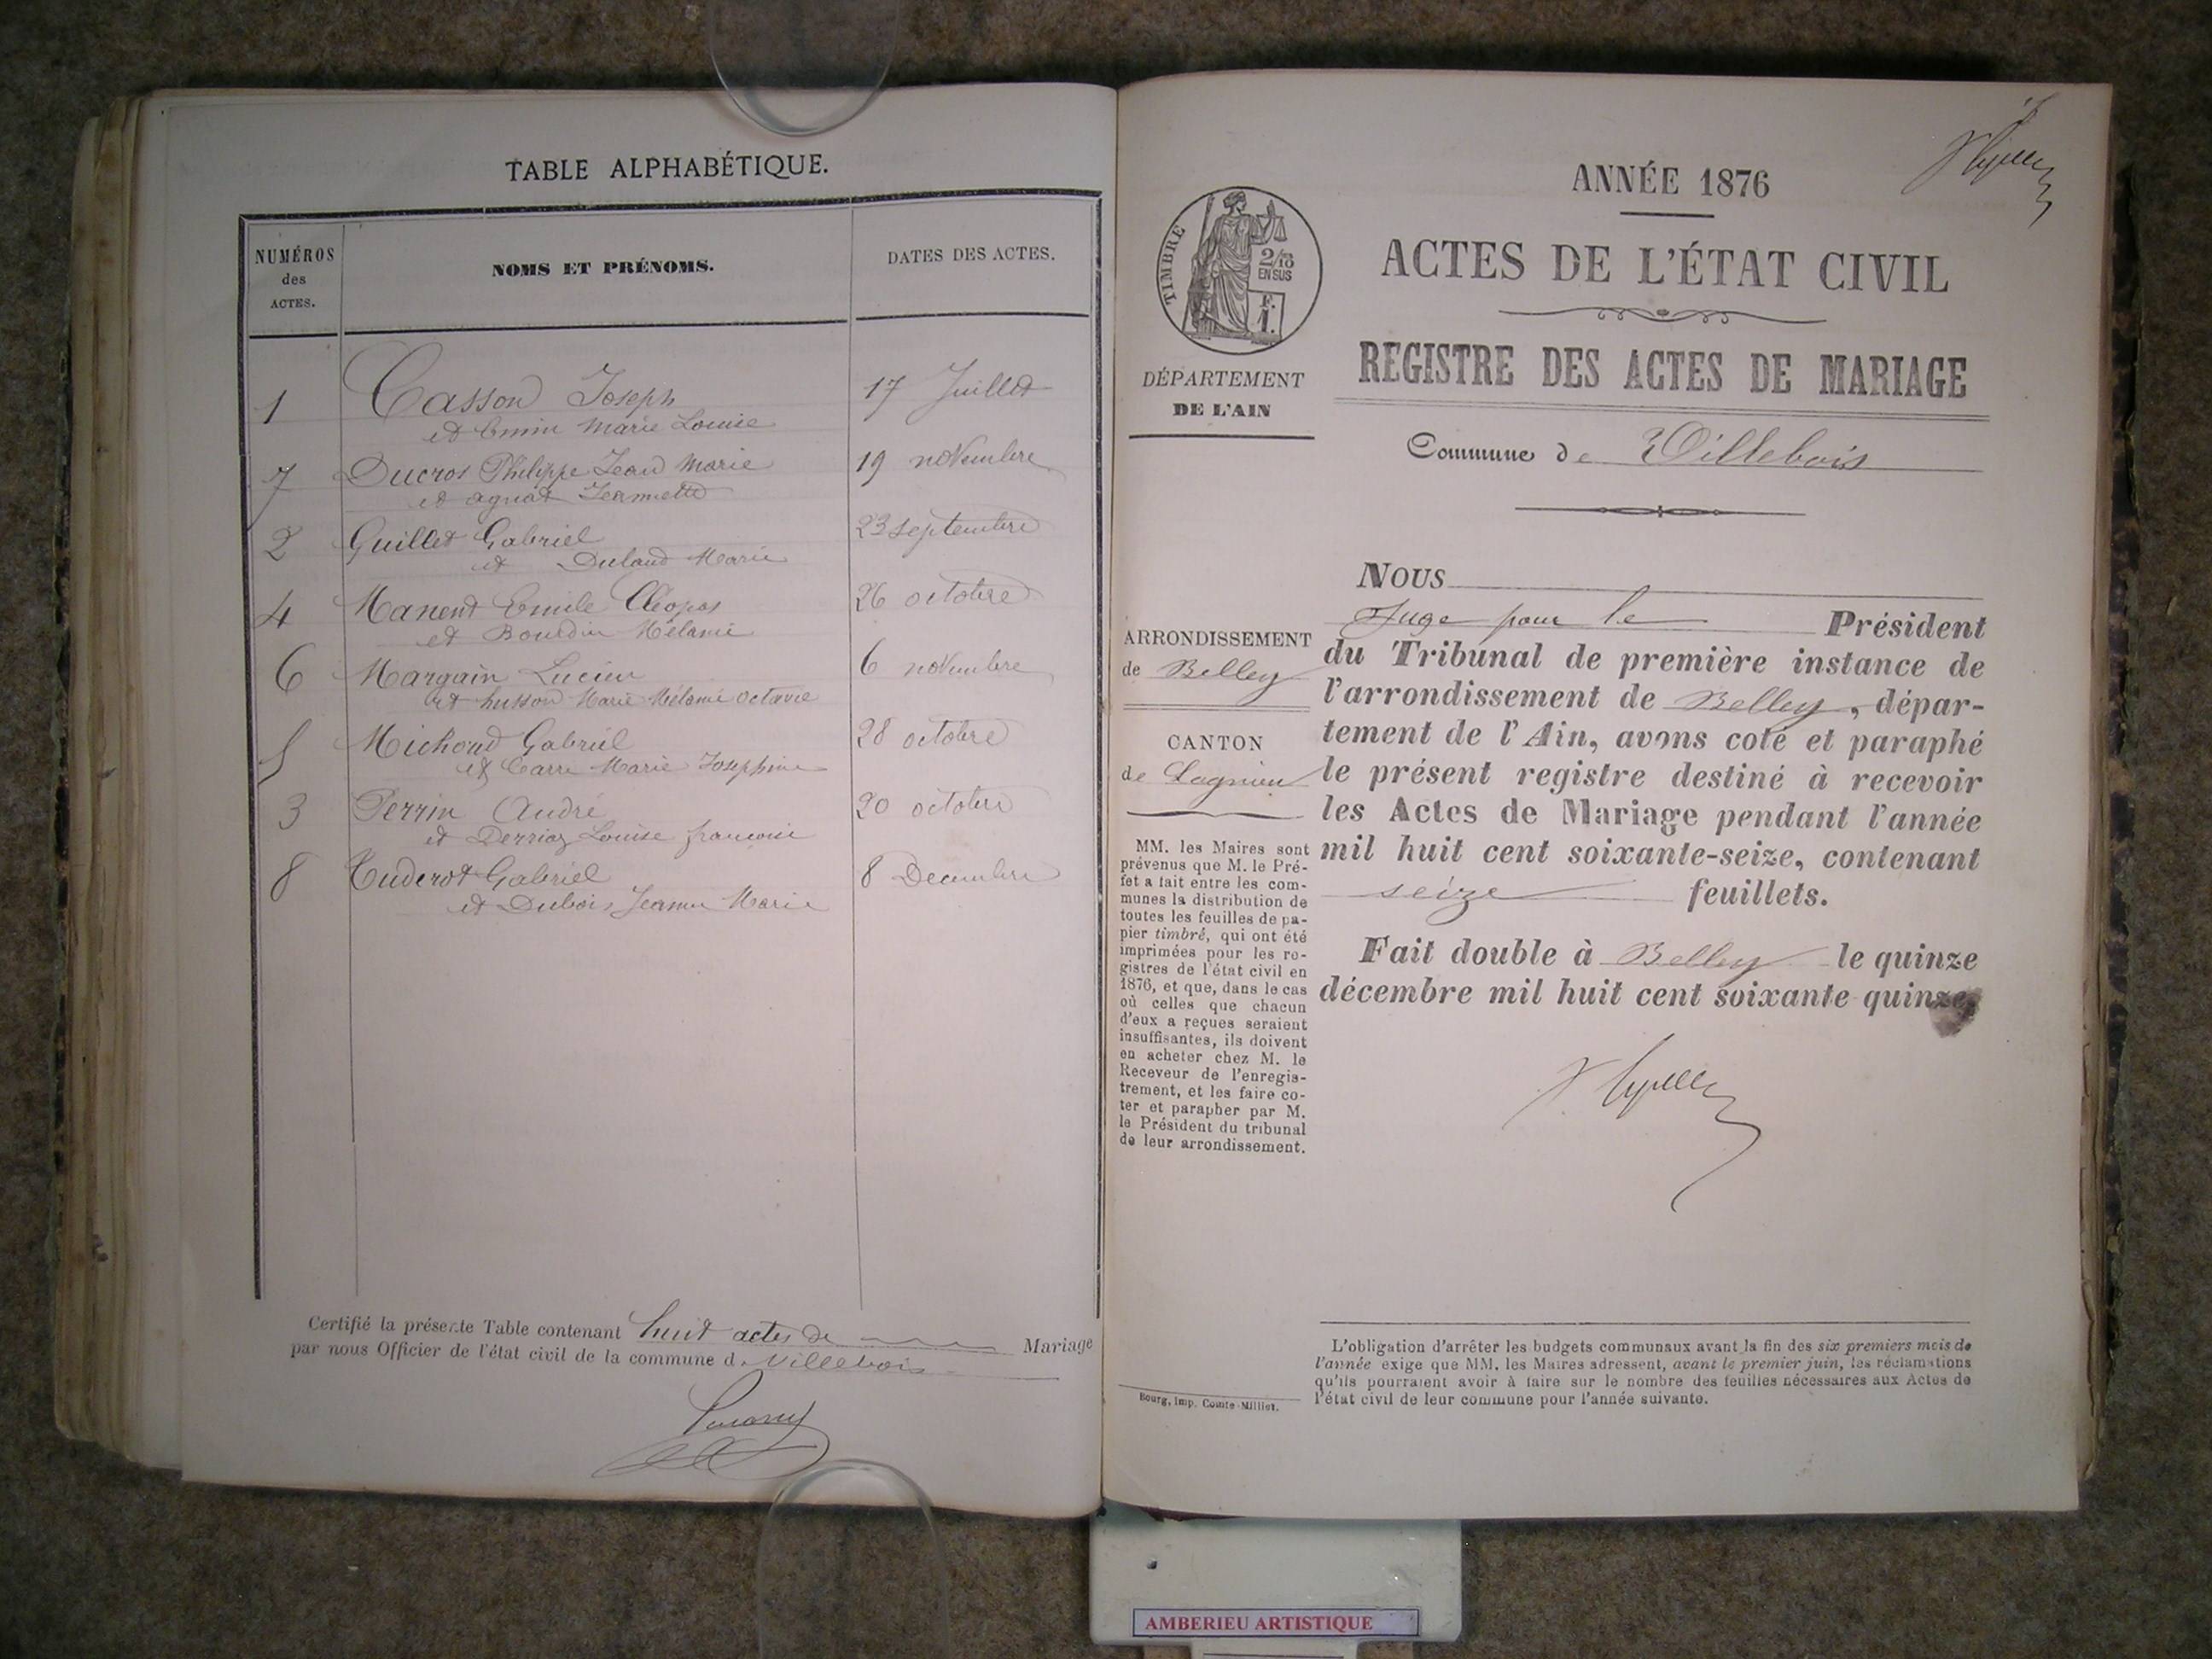 TABLE ALPHABÉTIQUE.
NUMÉROS
des
ACTES.
NOMS ET PRÉNOMS.
DATES DES ACTES.
1 Casson Joseph 17 Juillet
et Emin Marie Louise
7 Ducros Philippe Jean Marie 19 novembre
et agnat Jeannette
2 Guillet Gabriel 23 septembre
et Dulaud Marie
4 Manent Emile Cléopas 26 octobre
et Bourdin Mélanie
6 Margain Lucien 6 novembre
et husson Marie Mélanie octavie
5 Michoud Gabriel 28 octobre
et Carre Marie Josephine
3 Perrin André 20 octobre
et Derriaz Louise françoise
8 Tuderot Gabriel 8 Decembre
et Dubois Jeanne Marie
Certifié la présente Table contenant huit actes de Mariage
par nous Officier de l'état civil de la commune de Villebois
ANNÉE 1876
ACTES DE L'ÉTAT CIVIL
REGISTRE DES ACTES DE MARIAGE
Commune de Villebois
TIMBRE
2/10
EN SUS
F.
1.
DÉPARTEMENT
DE L'AIN
ARRONDISSEMENT
de Belley
CANTON
de Lagnieu
MM. les Maires sont
prévenus que M. le Pré-
fet a fait entre les com-
munes la distribution de
toutes les feuilles de pa-
pier timbré, qui ont été
imprimées pour les re-
gistres de l'état civil en
1876, et que, dans le cas
où celles que chacun
d'eux a reçues seraient
insuffisantes, ils doivent
en acheter chez M. le
Receveur de l'enregis-
trement, et les faire co-
ter et parapher par M.
le Président du tribunal
de leur arrondissement.
Bourg, Imp. Comte-Milliet.
NOUS
Juge pour le Président
du Tribunal de première instance de
l'arrondissement de Belley, dépar-
tement de l'Ain, avons coté et paraphé
le présent registre destiné à recevoir
les Actes de Mariage pendant l'année
mil huit cent soixante-seize, contenant
seize feuillets.
Fait double à Belley le quinze
décembre mil huit cent soixante quinze
L'obligation d'arrêter les budgets communaux avant la fin des six premiers mois de
l'année exige que MM. les Maires adressent, avant le premier juin, les réclamations
qu'ils pourraient avoir à faire sur le nombre des feuilles nécessaires aux Actes de
l'état civil de leur commune pour l'année suivante.
AMBERIEU ARTISTIQUE